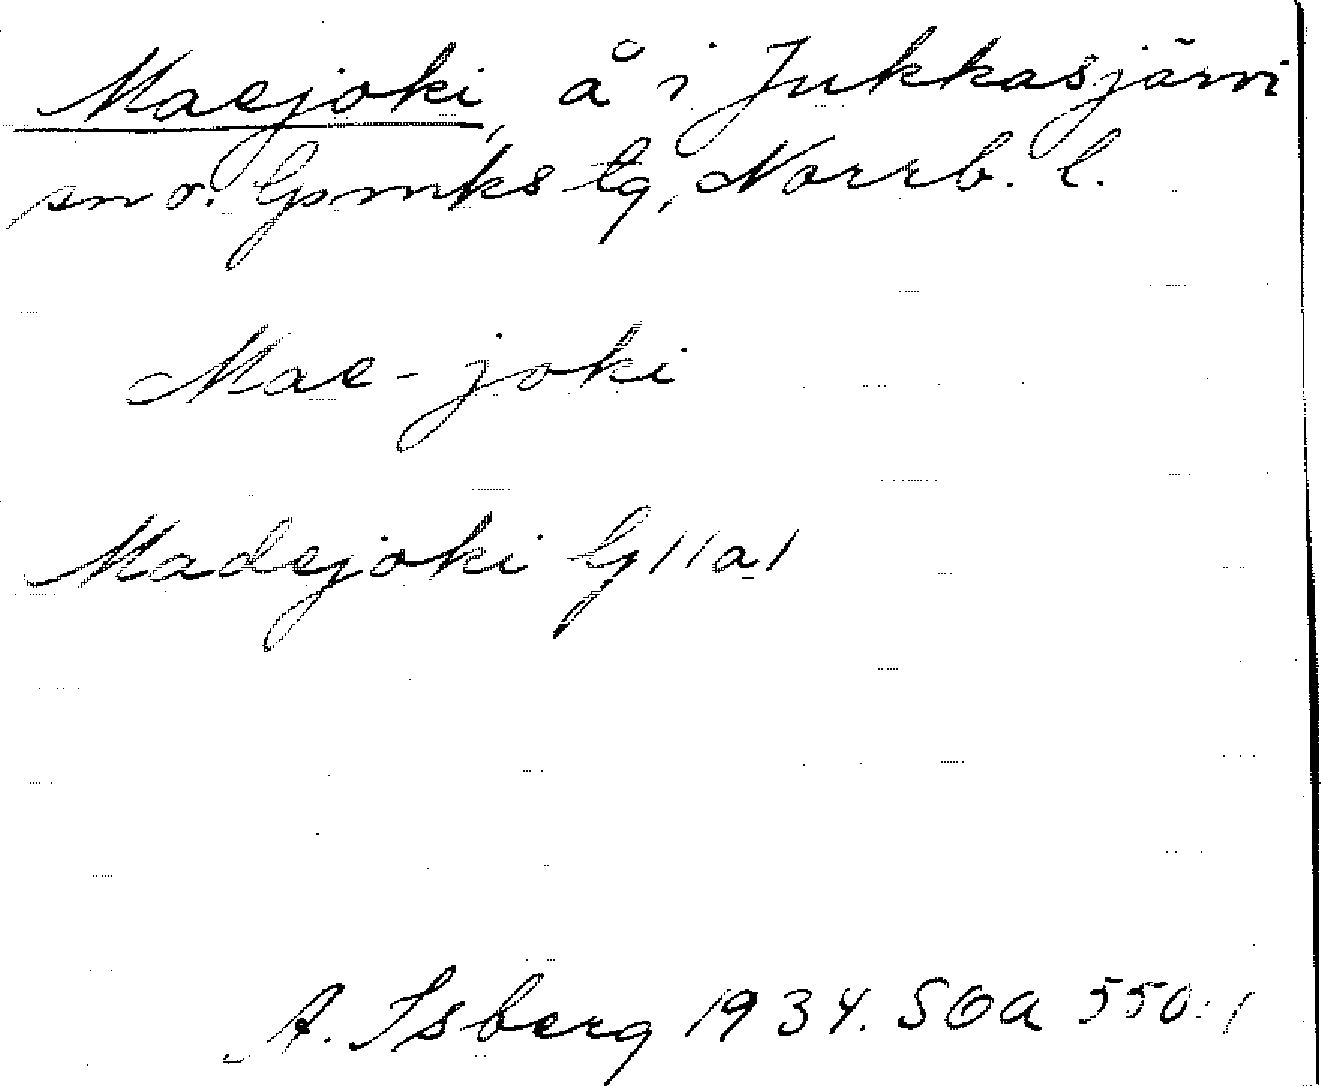 Maejoki, å i Jukkasjärvi
sn o. lpmks tg, Norrb. l.
Mae-joki
Madejoki G11a1
A. Isberg 1934. SOA 550:1